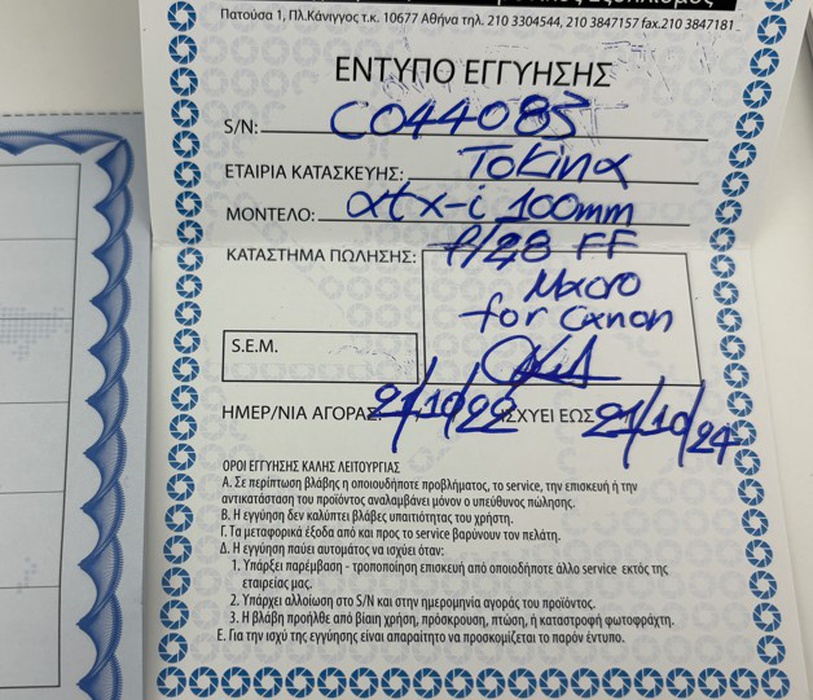 Πατούσα 1, Πλ.Κάνιγγος τ.κ. 10677 Αθήνα τηλ. 210 3304544, 210 3847157 fax.210 3847181
ΕΝΤΥΠΟ ΕΓΓΥΗΣΗΣ
S/N: C044083
ΕΤΑΙΡΙΑ ΚΑΤΑΣΚΕΥΗΣ: Tokina
ΜΟΝΤΕΛΟ: atx-i 100mm
ΚΑΤΑΣΤΗΜΑ ΠΩΛΗΣΗΣ: f/28 FF
Macro
for Canon
S.E.M.
ΗΜΕΡ/ΝΙΑ ΑΓΟΡΑΣ: 21/10/22 ΙΣΧΥΕΙ ΕΩΣ 21/10/24
ΟΡΟΙ ΕΓΓΥΗΣΗΣ ΚΑΛΗΣ ΛΕΙΤΟΥΡΓΙΑΣ
Α. Σε περίπτωση βλάβης η οποιουδήποτε προβλήματος, το service, την επισκευή ή την
αντικατάσταση του προϊόντος αναλαμβάνει μόνον ο υπεύθυνος πώλησης.
Β. Η εγγύηση δεν καλύπτει βλάβες υπαιτιότητας του χρήστη.
Γ. Τα μεταφορικά έξοδα από και προς το service βαρύνουν τον πελάτη.
Δ. Η εγγύηση παύει αυτομάτος να ισχύει όταν:
1. Υπάρξει παρέμβαση - τροποποίηση επισκευή από οποιοδήποτε άλλο service εκτός της
εταιρείας μας.
2. Υπάρχει αλλοίωση στο S/N και στην ημερομηνία αγοράς του προϊόντος.
3. Η βλάβη προήλθε από βίαιη χρήση, πρόσκρουση, πτώση, ή καταστροφή φωτοφράχτη.
Ε. Για την ισχύ της εγγύησης είναι απαραίτητο να προσκομίζεται το παρόν έντυπο.